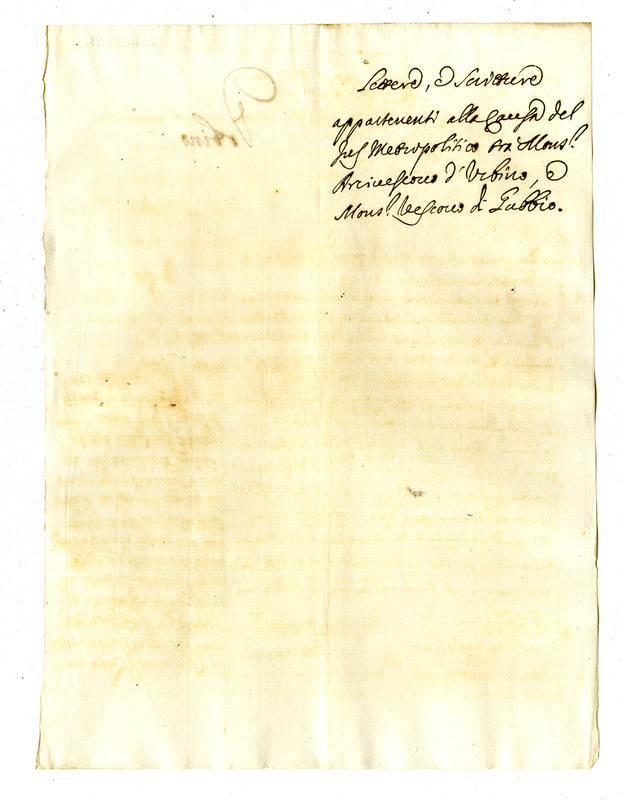 Lettere, e Scritture
appartenenti alla Causa del
Jus Metropolitico trà Mons.r
Arcivescovo d'Urbino, e
Mons.r Vescovo di Gubbio.